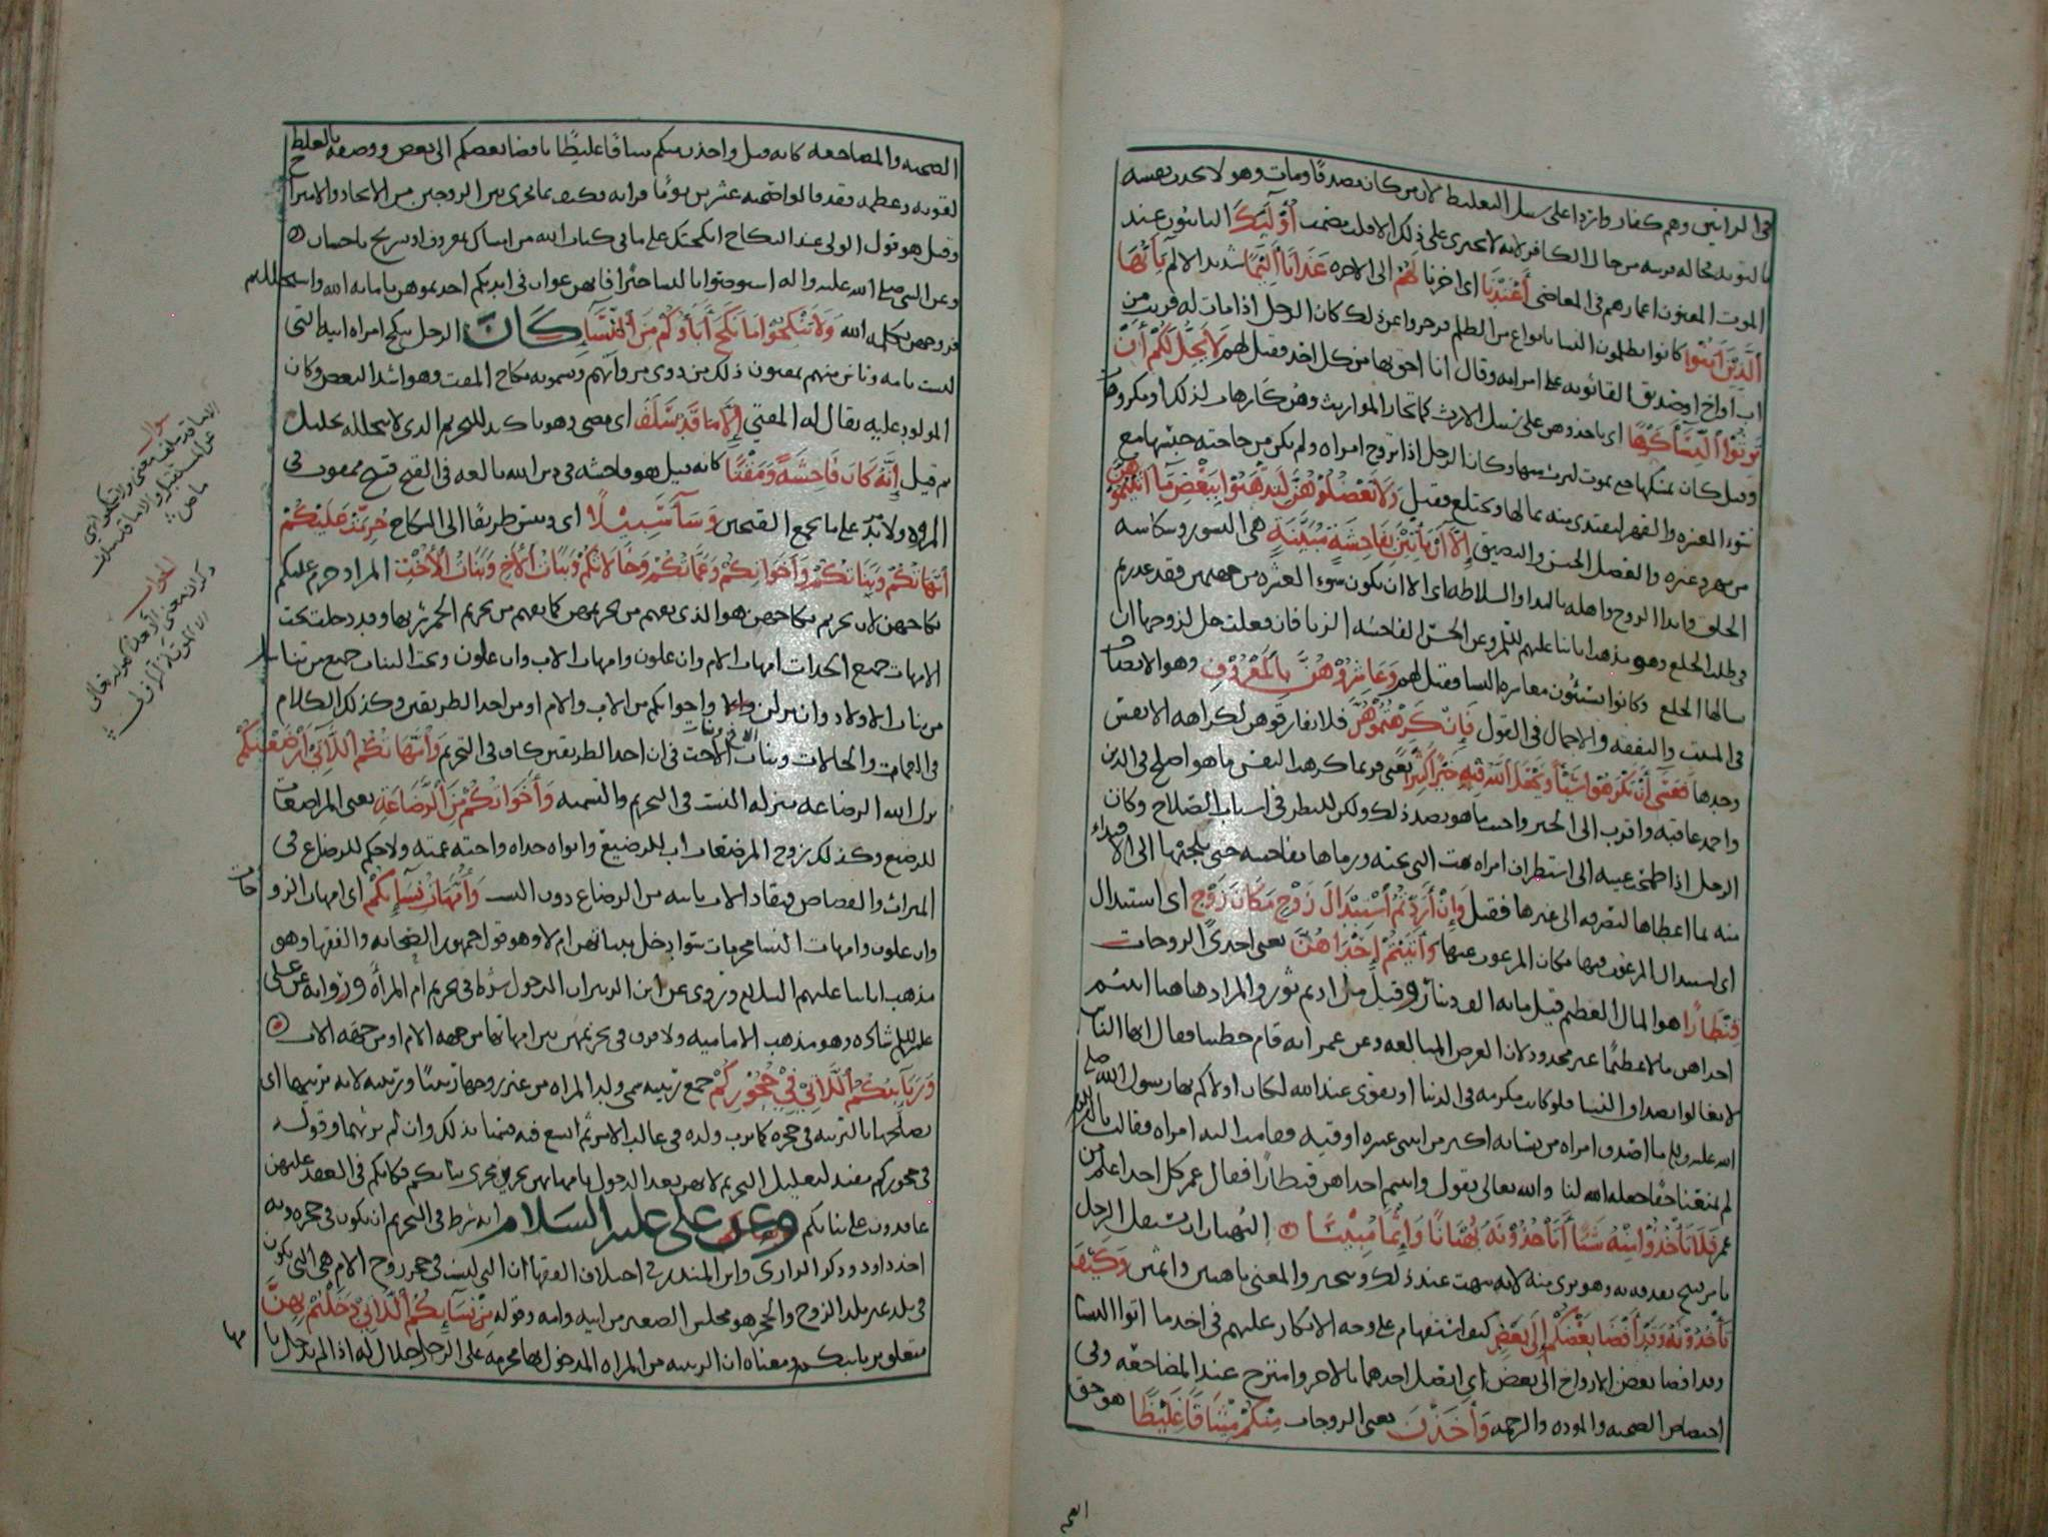 في الزانيين وهم كفار وانزه اعلى سبيل التغليظ لان من كان مصدقا ومات وهو لا يحدث نفسه
بالتوبة حاله قريبة من حال الكافر لانه لا يجترى على ذلك الا قلب مصمت أُولَٰئِكَ التائبون عند
الموت المفنون اعمارهم في المعاصي أَعْتَدْنَا اي اخرنا لَهُمْ الى الاخرة عَذَابًا أَلِيمًا شديد الالم يَا أَيُّهَا
الَّذِينَ آمَنُوا كانوا يظلمون النسا بانواع من الظلم فزجروا عن ذلك كان الرجل اذا مات له قريب من
اب او اخ او صديق القا ثوبه على امراته وقال انا احق بها من كل احد فقيل لهم لَا يَحِلُّ لَكُمْ أَنْ
تَرِثُوا النِّسَاءَ كَرْهًا اي تاخذوهن على سبيل الارث كما تحاز المواريث وهن كارهات لذلك او مكروهات
وقيل كان يمسكها حتى تموت ليرث منها وكان الرجل اذا تزوج امراه ولم يكن من حاجته حبسها مع
سوء العشرة والقهر لتفتدى منه بمالها وتختلع فقيل وَلَا تَعْضُلُوهُنَّ لِتَذْهَبُوا بِبَعْضِ مَا آتَيْتُمُوهُنَّ
من مهر وغيره والعضل الحبس والتضييق إِلَّا أَنْ يَأْتِينَ بِفَاحِشَةٍ مُبَيِّنَةٍ هي النشوز وشكاسة
الخلق وايذا الزوج واهله بالبذا والسلاطة اي الا ان يكون سوء العشرة من جهتهن فقد عذرتم
في طلب الخلع وهو مذهب ابائنا عليهم السلم وعن الحسن الفاحشه الزنا فان فعلت حل لزوجها ان
يسالها الخلع وكانوا يسيئون معاشرة النسا فقيل لهم وَعَاشِرُوهُنَّ بِالْمَعْرُوفِ وهو الانصاف
في المبيت والنفقه والاجمال في القول فَإِنْ كَرِهْتُمُوهُنَّ فلا تفارقوهن لكراهة الانفس
وحدها فَعَسَى أَنْ تَكْرَهُوا شَيْئًا وَيَجْعَلَ اللَّهُ فِيهِ خَيْرًا كَثِيرًا يعني فربما كرهت النفس ما هو اصلح في الدين
واحمد عاقبة واقرب الى الخير واحبت ما هو بضد ذلك ولكن للنظر في اسباب الصلاح وكان
الرجل اذا طمحت عينه الى استطراف امراه بهت التي تحته ورماها بفاحشه حتى يلجئها الى الافتداء
منه بما اعطاها ليصرفه الى غيرها فقيل وَإِنْ أَرَدْتُمُ اسْتِبْدَالَ زَوْجٍ مَكَانَ زَوْجٍ اي استبدال
اي استبدال المرغوب فيها مكان المرغوب عنها وَآتَيْتُمْ إِحْدَاهُنَّ يعني احدى الزوجات
قِنْطَارًا هو المال العظيم قيل مايه الف دينار وقيل ملء اديم ثور والمراد هاهنا اتيتم
احداهن مالا عظيما غير محدود لان الغرض المبالغه وعن عمر انه قام خطيبا فقال ايها الناس
لا تغالوا بصداق النسا فلو كانت مكرمه في الدنيا او تقوى عند الله لكان اولاكم بها رسول الله صلى
الله عليه وسلم ما اصدق امراه من نسائه اكثر من اثنى عشره اوقيه فقامت اليه امراه فقالت يا امير المومنين
لم تمنعنا حقا جعله الله لنا والله تعالى يقول واتيتم احداهن قنطارا فقال عمر كل احد اعلم من
عمر فَلَا تَأْخُذُوا مِنْهُ شَيْئًا أَتَأْخُذُونَهُ بُهْتَانًا وَإِثْمًا مُبِينًا البهتان ان تستقبل الرجل
بامر قبيح تقذفه به وهو برى منه لانه يبهت عند ذلك ويتحير والمعنى باهتين واثمين وَكَيْفَ
تَأْخُذُونَهُ وَقَدْ أَفْضَى بَعْضُكُمْ إِلَى بَعْضٍ كيف استفهام على وجه الانكار عليهم في اخذ ما اتوا النسا
وقد افضا بعض الازواج الى بعض اي اتصل احدهما بالاخر وامتزج عند المضاجعه وفي
اختصاص الصحبه والمودة والرحمه وَأَخَذْنَ يعني الزوجات مِنْكُمْ مِيثَاقًا غَلِيظًا هو حق
الصحبه والمضاجعه كانه قيل واخذن منكم ميثاقا غليظا بافضا بعضكم الى بعض ووصفه بالغلظ
لقوته وعظمه فقد قالوا صحبة عشرين يوما قرابه فكيف بما يجرى بين الزوجين من الاتحاد والامتزاج
وقيل هو قول الولى عند النكاح انكحتك على ما في كتاب الله من امساك بمعروف او تسريح باحسان
وعن النبي صلى الله عليه واله استوصوا بالنسا خيرا فانهن عوان في ايديكم اخذتموهن بامانه الله واستحللتم
فروجهن بكلمة الله وَلَا تَنْكِحُوا مَا نَكَحَ آبَاؤُكُمْ مِنَ النِّسَاءِ كان الرجل ينكح امراه ابيه التي
ليست بامه وناس منهم يمقتون ذلك من ذوى مروآتهم ويسمونه نكاح المقت وهو اشد البغض وكان
المولود عليه يقال له المقتي إِلَّا مَا قَدْ سَلَفَ اي مضى وهو تاكيد للتحريم الذي لا يتخلله تحليل
ثم قيل إِنَّهُ كَانَ فَاحِشَةً وَمَقْتًا كانه قيل هو فاحشه في دين الله بالغه في القبح قبيح ممقوت في
المروه ولا مزيد على ما يجمع القبحين وَسَاءَ سَبِيلًا اي وبئس طريقا الى النكاح حُرِّمَتْ عَلَيْكُمْ
أُمَّهَاتُكُمْ وَبَنَاتُكُمْ وَأَخَوَاتُكُمْ وَعَمَّاتُكُمْ وَخَالَاتُكُمْ وَبَنَاتُ الْأَخِ وَبَنَاتُ الْأُخْتِ المراد حرم عليكم
نكاحهن لان تحريم نكاحهن هو الذي يفهم من تحريمهن كما يفهم من تحريم الخمر شربها وقد دخلت تحت
الامهات جميع الجدات امهات الام وان علون وامهات الاب وان علون وتحت البنات جميع من تناسل
من بنات الاولاد وان نزلن واخواتكم من الاب والام او من احد الطريقين وكذلك الكلام
في العمات والخالات وبنات الاخ وبنات الاخت في ان احد الطريقين كاف في التحريم وَأُمَّهَاتُكُمُ اللَّاتِي أَرْضَعْنَكُمْ
نزل الله الرضاعه منزله النسب في التحريم والتسميه وَأَخَوَاتُكُمْ مِنَ الرَّضَاعَةِ يعني المراضعات
للرضيع وكذلك زوج المرضعات اب للرضيع وابواه جداه واخته عمته ولا حكم للرضاع في
الميراث والقصاص فيقاد الاب بابنه من الرضاع دون النسب وَأُمَّهَاتُ نِسَائِكُمْ اي امهات الزوجات
وان علون وامهات النسا محرمات سوا دخل ببناتهن ام لا وهو قول جمهور الصحابه والفقها وهو
مذهب ابائنا عليهم السلام وروى عن ابن الزبير ان الدخول شرط في تحريم ام المراه وروايه عن علي
عليه السلم شاذه وهو مذهب الاماميه ولا فرق في تحريمهن بين امهاتها من جهه الام او من جهه الاب
وَرَبَائِبُكُمُ اللَّاتِي فِي حُجُورِكُمْ جمع ربيبه سمي ولد المراه من غير زوجها ربيبا وربيبه لانه يربيهما اي
يصلحهما بالتربيه في حجره كما يرب ولده في غالب الامر ثم اتسع فيه فسميا بذلك وان لم يربهما وقوله
في حجوركم يفيد لتعليل التحريم لانهن بعد الدخول بامهاتهن تجرى مجرى بناتكم فكانكم في العقد عليهن
عاقدون على بناتكم وعن علي عليه السلام انه شرط في التحريم ان يكون في حجره وبه
اخذ داود وذكر الرازي وابن المنذر في اختلاف الفقها ان التي ليست في حجر زوج الام هي التي تكون
في بلد غير بلد الزوج والحجر هو مجلس الصغير من ابيه وامه وقوله مِنْ نِسَائِكُمُ اللَّاتِي دَخَلْتُمْ بِهِنَّ
متعلق بربائبكم ومعناه ان الربيبه من المراه المدخول بها محرمه على الرجل وحلال له اذا لم يدخل بها
سوال
الجواب